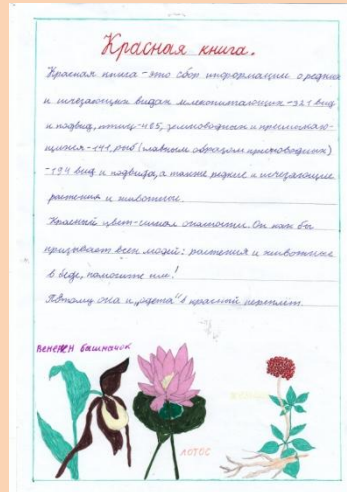 Красная книга.
Красная книга - это сбор информации о редких
и исчезающих видах млекопитающих - 321 вид
и подвид, птиц - 485, земноводных и пресмыкаю-
щихся - 141, рыб (главным образом пресноводных)
- 194 вид и подвида, а также редкие и исчезающие
растения и животные.
Красный цвет - сигнал опасности. Он как бы
призывает всех людей: растения и животные
в беде, помогите им!
Поэтому она и "одета" в красный переплет.
Венерен башмачок
лотос